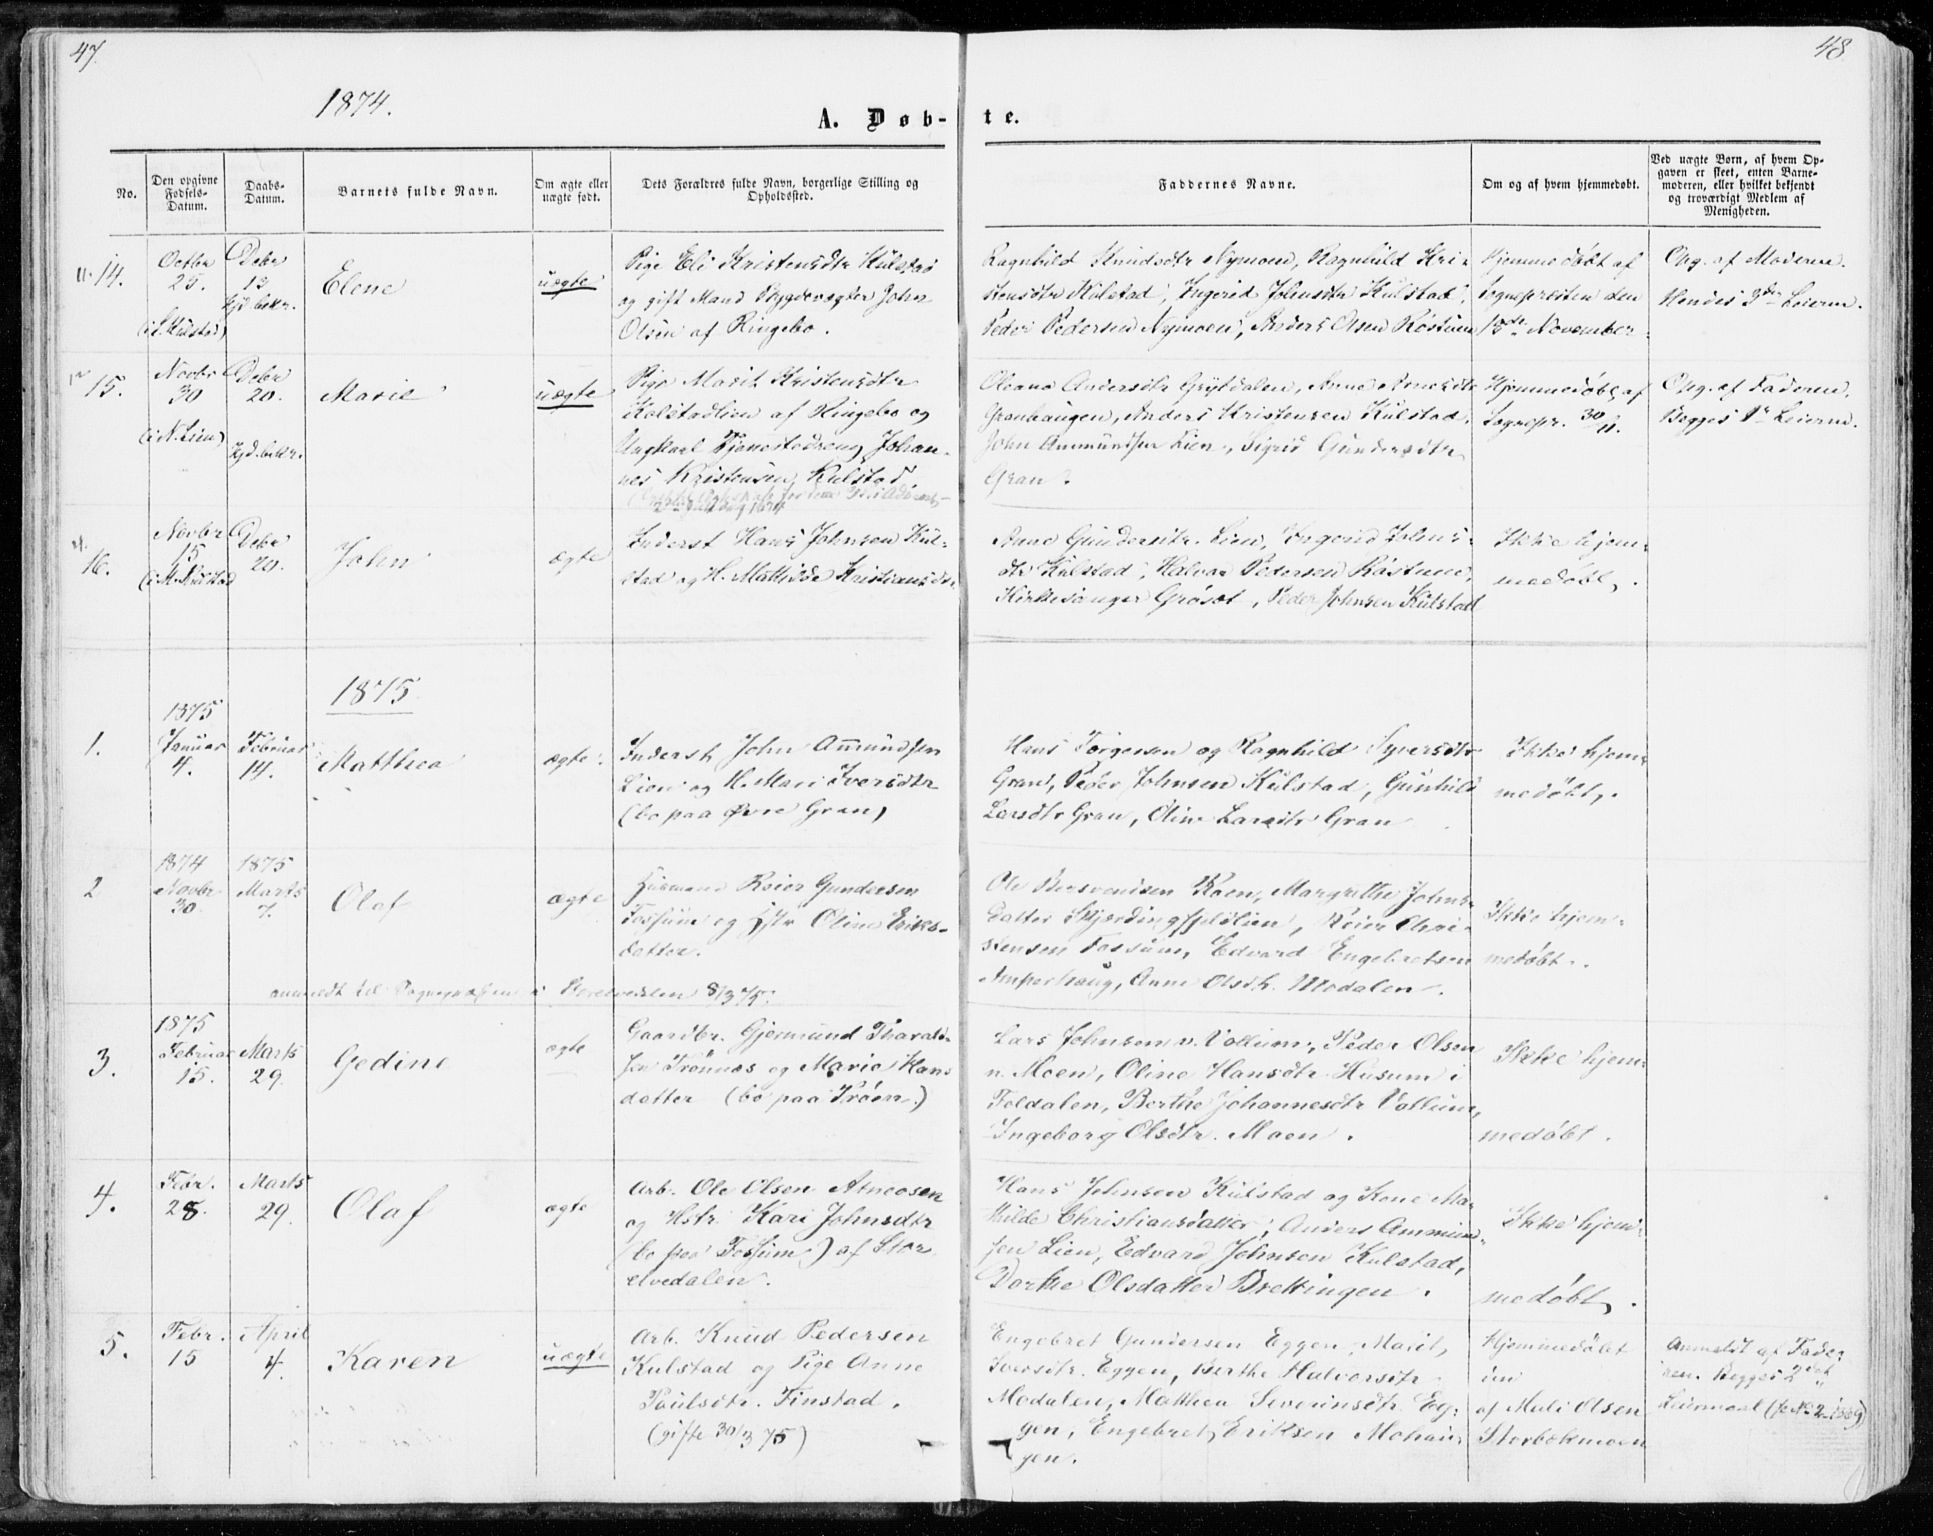 47.
48
1874.
A. Døb-
te.
No.
Den opgivne Fødsels-Datum.
Daabs-Datum.
Barnets fulde Navn.
Om ægte eller uægte født.
Dets Forældres fulde Navn, borgerlige Stilling og Opholdssted.
Faddernes Navne.
Om og af hvem hjemmedøbt.
Ved uægte Børn, af hvem Opgaven er skeet, enten Barnemoderen, eller hvilket bekjendt og troværdigt Medlem af Menigheden.
14.
Octbr
25.
Debr
13
Elene
uægte
Pige Eli Kristensdtr Kulstad
og gift Mand Bygdevægter John
Olsen af Ringebo.
Ragnhild Knudsdtr Nymoen, Ragnhild Kri-
stensdtr Kulstad, Ingerid Johnsdtr Kulstad,
Peder Pedersen Nymoen, Anders Olsen Rostum
Hjemmedøbt af
Sognepresten den
13de November
Opg. af Moderen.
Hendes 3die Leierm.
15.
Novbr
30
(i N. Lien)
Debr
20.
Marie
uægte
Pige Marit Kristensdtr
Kolstadlien af Ringebo og
Ungkarl Johan-
nes Kristensen Kulstad.
Oleana Andersdtr Grytdalen, Anne
Granhaugen, Anders Kristensen Kulstad,
John Ammundsen Lien, Sigrid Gundersdtr
Gran.
Hjemmedøbt af
Sognepr. 30/11.
Opg. af Faderen.
Begges 1ste Leierm.
16.
Novbr
15
(i M. Kulstad
Debr
20.
John
ægte
Inderst Hans Johnsen Kul-
stad og H. Mathilde Kristiansdtr
Anne Gundersdtr. Lien, Ingerid Johns-
dtr Kulstad, Halvor Pedersen Rostum,
Kirkesanger Grøset, Peder Johnsen Kulstad
Ikke hjem-
medøbt.
1875
1.
1875
Januar
4.
Februar
14.
Matthea
ægte.
Inderst John Amundsen
Lien og H. Mari Iversdtr
(bo paa Øvre Gran)
Hans Torgersen og Ragnhild Syversdtr
Gran, Peder Johnsen Kulstad, Gunhild
Larsdtr Gran, Oline Larsdtr Gran
Ikke hjem-
medøbt.
2
1874
Novbr
30.
1875
Marts
7.
Olaf
ægte
Husmand Reier Gundersen
Fossum og Hstr Oline Eriks-
datter.
Ole Bersvendsen Moen, Margrethe Johns-
datter, Reier Chri-
stensen Fossum, Edvard Engebretsen
Amperhaug, Anne Olsdtr. Modalen.
Ikke hjem-
medøbt.
anmeldt til Sognepresten i Storelvedalen 8/3 75.
3.
1875
Februar
15.
Marts
29.
Gedine
ægte
Gaardbr. Gjermund Tharald-
sen Trønnes og Marie Hans
datter (bo paa Trøen.)
Lars Johnsen n. Vollum, Peder Olsen
n. Moen, Oline Hansdtr Husum i
Foldalen, Berthe Johannesdtr Vollum,
Ingeborg Olsdtr. Moen.
Ikke hjem-
medøbt.
4.
Febr.
28.
Marts
29.
Olaf
ægte
Arb. Ole Olsen Atneosen
og Hstr. Kari Johnsdtr
(bo paa Fossum) af Stor-
elvedalen.
Hans Johnsen Kulstad og Kone Ma-
thilde Christiansdatter, Anders Ammund-
sen Lien, Edvard Johnsen Kulstad,
Dorthe Olsdatter Brettingen.
Ikke hjem-
medøbt.
5.
Febr.
15
April
4.
Karen
uægte
Arb. Knud Pedersen
Kulstad og Pige Anne
Paulsdtr. Finstad.
(gifte 30/3 75)
Engebret Gundersen Eggen, Marit
Iversdtr. Eggen, Berthe Halvorsdtr
Modalen, Matthea Severinsdtr. Eg-
gen, Engebret Eriksen Mohau-
gen.
Hjemmedøbt
af Muli Olsen
Storbekmoen
Anmeldt af Fade-
ren. Begges 2det
Leiermaal (se No 2 1869)